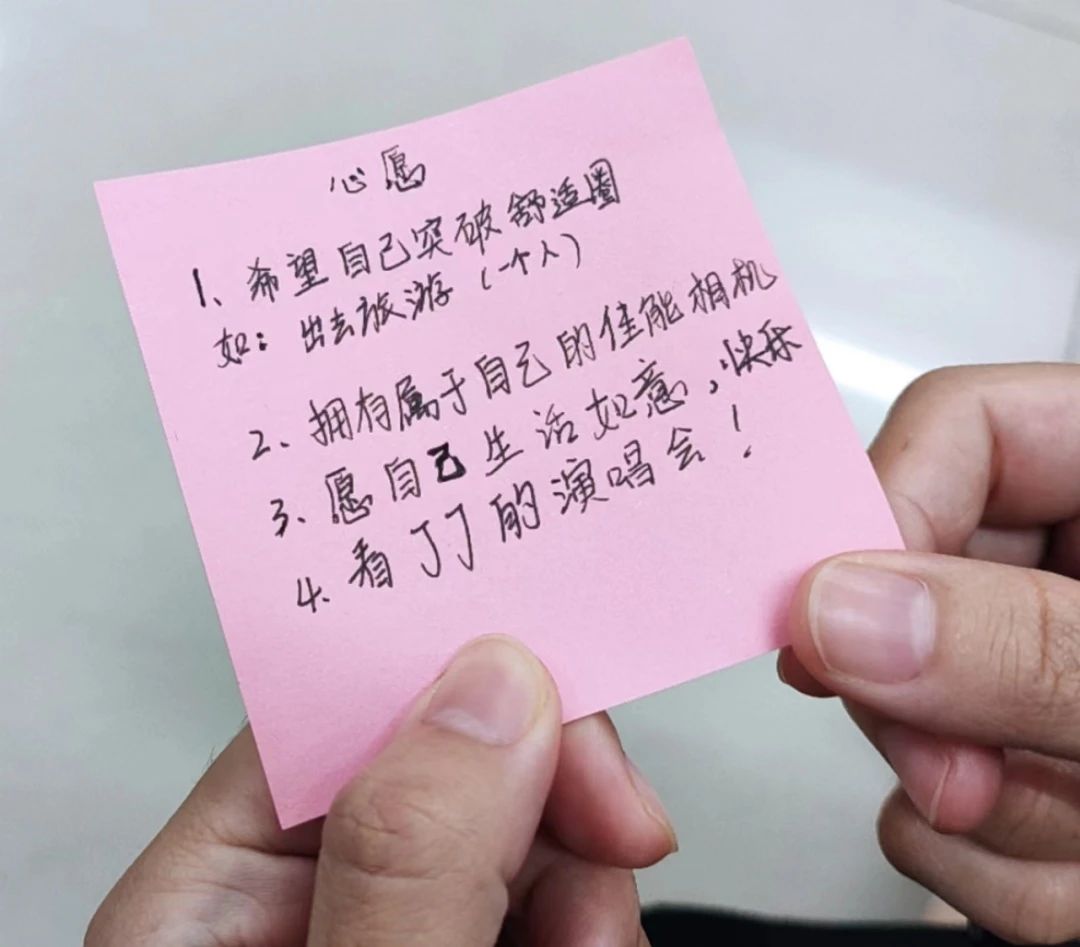 心愿
1、希望自己突破舒适圈
如：出去旅游（一个人）
2、拥有属于自己的佳能相机
3、愿自己生活如意，快乐
4、看JJ的演唱会！